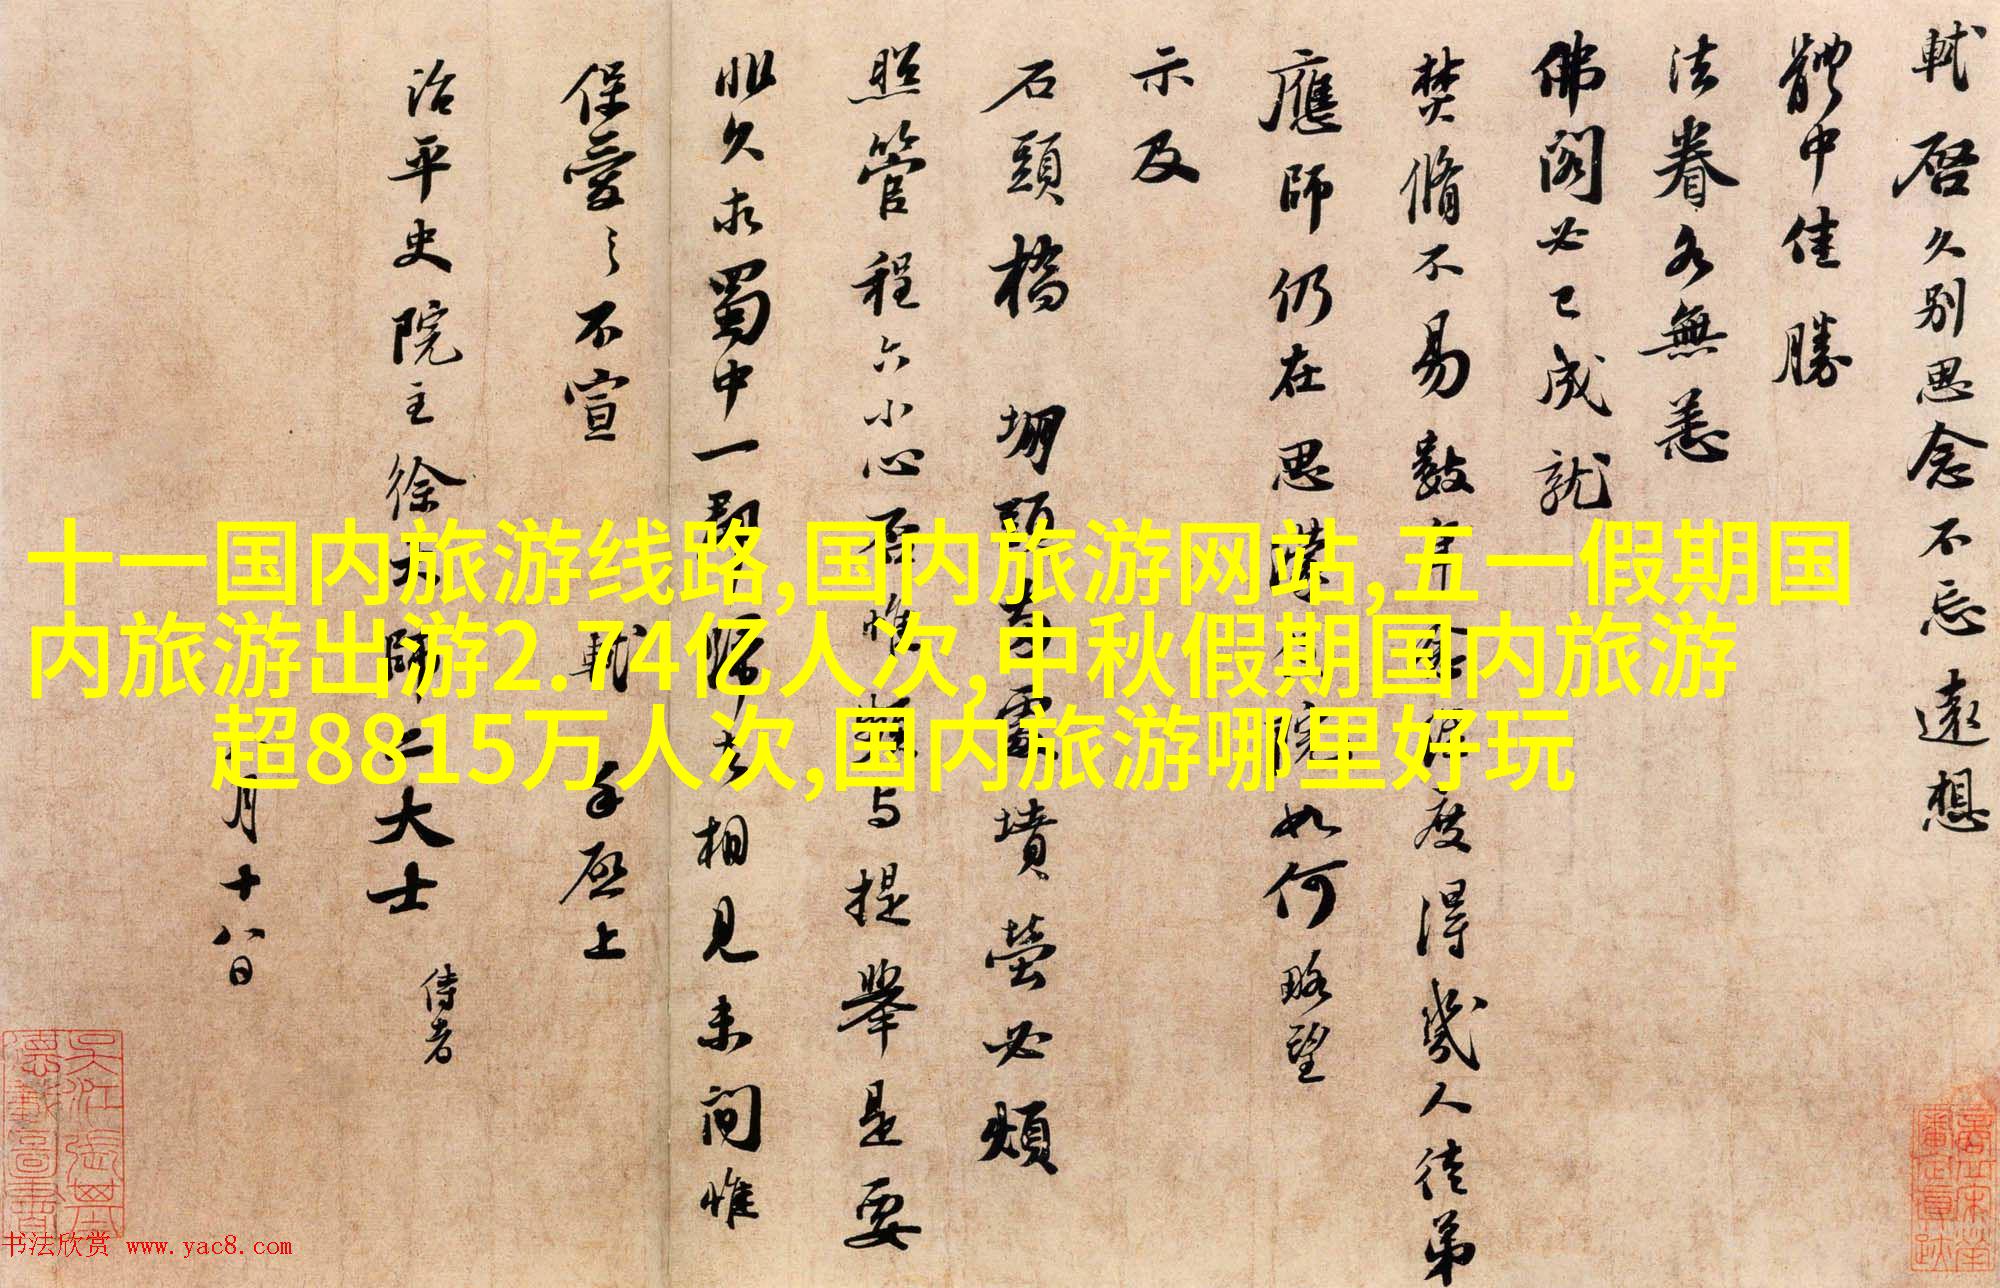 軾啓久別思念不忘遠想
體中佳勝
法眷各無恙
佛閣必已成就
焚脩不易數年念經度得幾人徒弟
應師仍在思濛住院如何略望
示及
石頭橋 堋頭兩處墳塋必煩
照管程六小心否惟頻与提舉是要
非久求蜀中一郡歸去相見未間惟
保愛之不宣 軾手啓上
治平史院主徐大師二大士 侍者
月十八日
十一国内旅游线路,国内旅游网站,五一假期国
内旅游出游2.74亿人次,中秋假期国内旅游
超8815万人次,国内旅游哪里好玩
书法欣赏 www.yac8.com